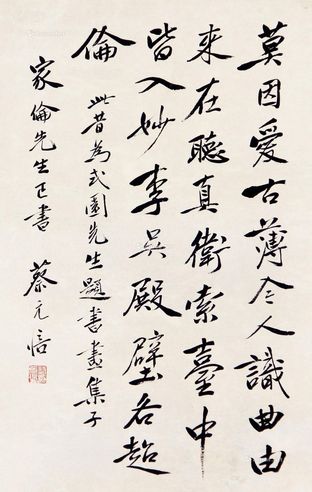 莫因愛古薄今人識曲由
來在聽真衛索臺中
皆入妙李吳殿壁各超
倫
此昔為式園先生題書畫集子
家倫先生正書
蔡元培